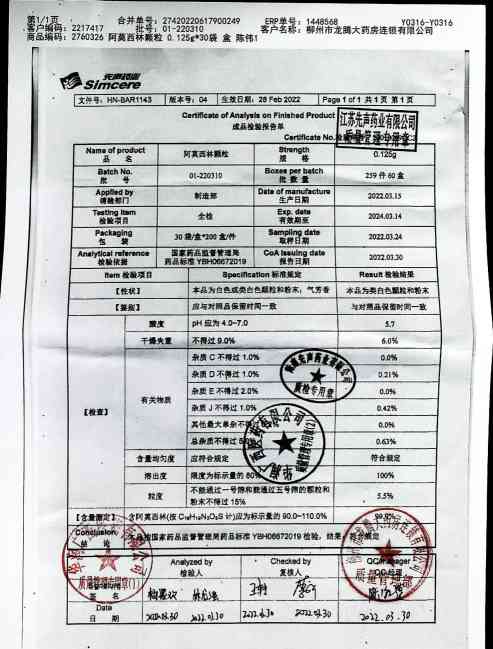 第1/1页 合并单号: 27420220617900249 ERP单号: 1448568 Y0316-Y0316
客户编码: 2217417 批号: 01-220310 客户名称: 柳州市龙腾大药房连锁有限公司
商品编码: 2760326 阿莫西林颗粒 0.125g*30袋 盒 陈伟1
先声药业
Simcere
文件号: HN-BAR1143 版本号: 04 生效日期: 28 Feb 2022 Page 1 of 1 共 1 页 第 1 页
Certificate of Analysis on Finished Product
成品检验报告单
江苏先声药业有限公司
质量管理专用章
Certificate No.
Name of product 品 名 阿莫西林颗粒 Strength 规 格 0.125g
Batch No. 批 号 01-220310 Boxes per batch 批 数 量 239 件 60 盒
Applied by 请验部门 制造部 Date of manufacture 生产日期 2022.03.15
Testing item 检验项目 全检 Exp. date 有效期至 2024.03.14
Packaging 包 装 30 袋/盒*200 盒/件 Sampling date 取样日期 2022.03.24
Analytical reference 检验依据 国家药品监督管理局 药品标准 YBH06672019 CoA issuing date 报告日期 2022.03.30
Item 检验项目 Specification 标准规定 Result 检验结果
【性状】 本品为白色或类白色颗粒和粉末；气芳香 本品为类白色颗粒和粉末
【鉴别】 应与对照品保留时间一致 与对照品保留时间一致
【检查】
酸度 pH 应为 4.0-7.0 5.7
干燥失重 不得过 9.0% 6.0%
有关物质
杂质 C 不得过 1.0% 0.0%
杂质 D 不得过 1.0% 0.21%
杂质 E 不得过 2.0% 0.0%
杂质 J 不得过 1.0% 0.42%
其他最大单杂不得 0.0%
总杂质不得过 0.63%
含量均匀度 应符合规定 符合规定
溶出度 限度为标示量的 80% 100%
粒度 不能通过一号筛和能通过五号筛的颗粒和粉末不得过 15% 5.5%
【含量测定】 含阿莫西林(按 C₁₆H₁₉N₃O₅S 计)应为标示量的 90.0~110.0% 99.0%
Conclusion 结 论 本品按国家药品监督管理局药品标准 YBH06672019 检验，结果：符合规定
质检专用章
质量管理专用章(2)
质量管理专用章(1)
质量管理部
Analyzed by 检验人 Checked by 复核人 QC manager
Signature 签 名
Date 日 期 2022.03.30 2022.03.30 2022.03.30 2022.03.30 2022.03.30